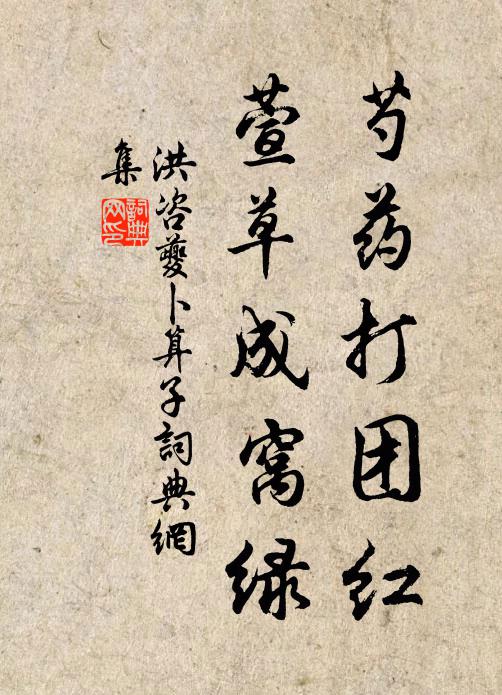 芍药打团红
萱草成窝绿
洪咨夔卜算子詞典網
集
詞典網印